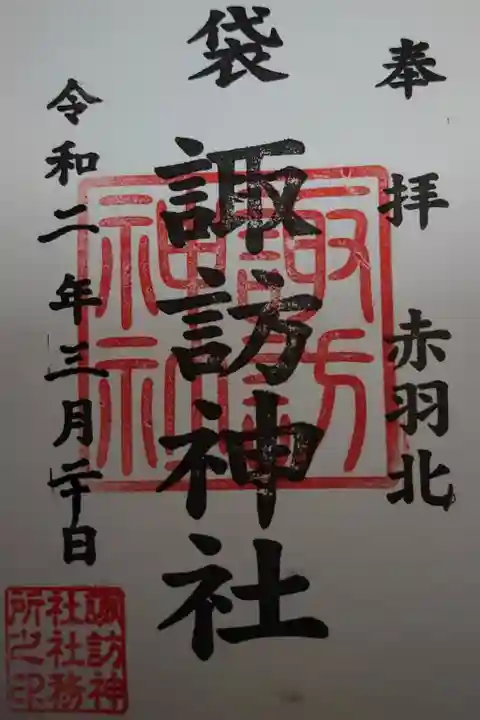 奉拝 赤羽北
袋 諏訪神社
令和二年三月二十日
諏訪神社
諏訪神社社務所之印